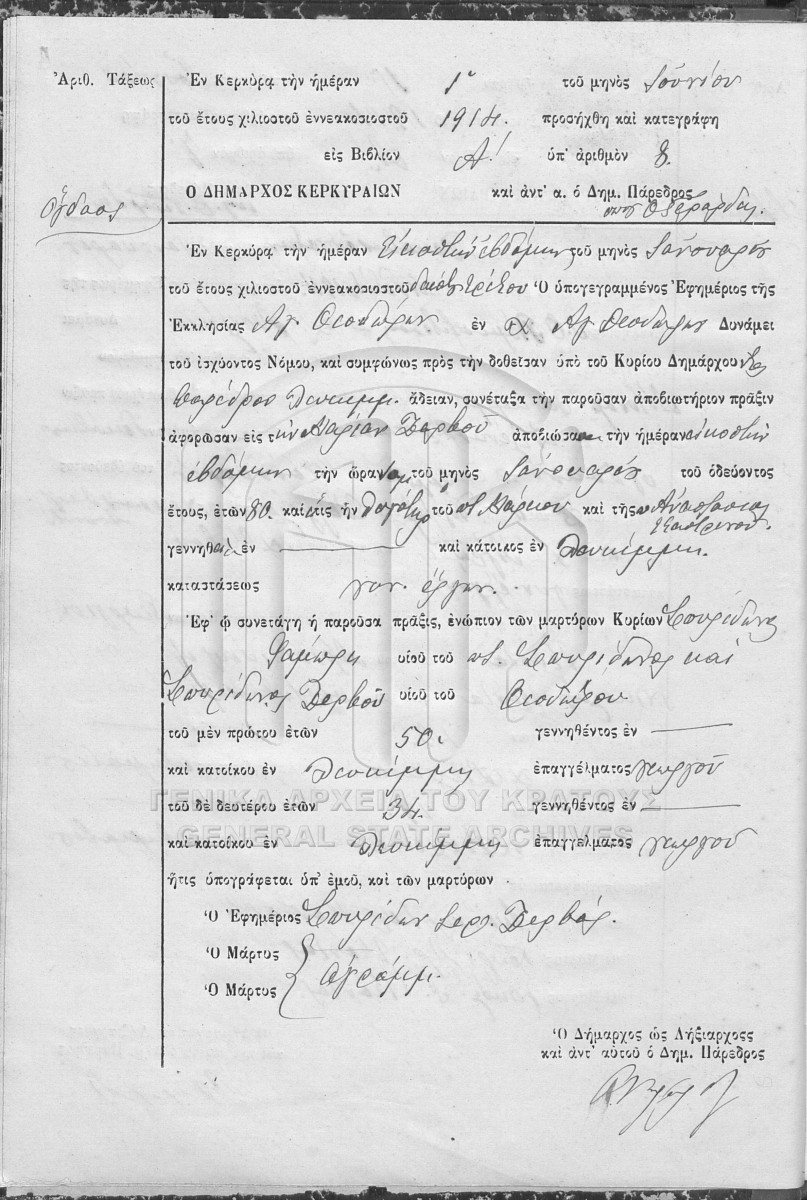 Ἀριθ. Τάξεως
Ἐν Κερκύρᾳ τὴν ἡμέραν 1η τοῦ μηνὸς Ἰουνίου
τοῦ ἔτους χιλιοστοῦ ἐννεακοσιοστοῦ 1914 προσήχθη καὶ κατεγράφη
εἰς Βιβλίον Α! ὑπ' ἀριθμὸν 8.
Ο ΔΗΜΑΡΧΟΣ ΚΕΡΚΥΡΑΙΩΝ καὶ ἀντ' α. ὁ Δημ. Πάρεδρος
Ὄγδοος
Ἐν Κερκύρᾳ τὴν ἡμέραν Εἰκοστὴν ἑβδόμην τοῦ μηνὸς Ἰανουαρίου
τοῦ ἔτους χιλιοστοῦ ἐννεακοσιοστοῦ Ὁ ὑπογεγραμμένος Ἐφημέριος τῆς
Ἐκκλησίας Ἁγ. Θεοδώρου ἐν Ἁγ. Θεοδώρου Δυνάμει
τοῦ ἰσχύοντος Νόμου, καὶ συμφώνως πρὸς τὴν δοθεῖσαν ὑπὸ τοῦ Κυρίου Δημάρχου
Παρέδρου Λευκίμμ. ἄδειαν, συνέταξα τὴν παροῦσαν ἀποβιωτήριον πρᾶξιν
ἀφορῶσαν εἰς τὴν Μαρίαν Δερβοῦ ἀποβιώσασαν τὴν ἡμέραν εἰκοστὴν
ἑβδόμην τὴν ὥραν τοῦ μηνὸς Ἰανουαρίου τοῦ ὁδεύοντος
ἔτους, ἐτῶν 80. καὶ ἥτις ἦν θυγάτηρ τοῦ π. Μάρκου καὶ τῆς Ἀναστασίας
γεννηθεῖσα ἐν —— καὶ κάτοικος ἐν Λευκίμμῃ.
καταστάσεως γυν. ἐργατ.
Ἐφ' ᾧ συνετάγη ἡ παροῦσα πρᾶξις, ἐνώπιον τῶν μαρτύρων Κυρίων Σπυρίδωνος
υἱοῦ τοῦ π. Σπυρίδωνος καὶ
Σπυρίδωνος Δερβοῦ υἱοῦ τοῦ Θεοδώρου
τοῦ μὲν πρώτου ἐτῶν 50. γεννηθέντος ἐν ——
καὶ κατοίκου ἐν Λευκίμμῃ ἐπαγγέλματος γεωργοῦ
τοῦ δὲ δευτέρου ἐτῶν 34. γεννηθέντος ἐν ——
καὶ κατοίκου ἐν Λευκίμμῃ ἐπαγγέλματος γεωργοῦ
ἥτις ὑπογράφεται ὑπ' ἐμοῦ, καὶ τῶν μαρτύρων
Ὁ Ἐφημέριος Σπυρίδων Ἱερ. Δερβός.
Ὁ Μάρτυς
Ἀγράμμ.
Ὁ Μάρτυς
Ὁ Δήμαρχος ὡς Λήξιαρχοςς
καὶ ἀντ' αὐτοῦ ὁ Δημ. Πάρεδρος
ΓΕΝΙΚΑ ΑΡΧΕΙΑ ΤΟΥ ΚΡΑΤΟΥΣ
GENERAL STATE ARCHIVES